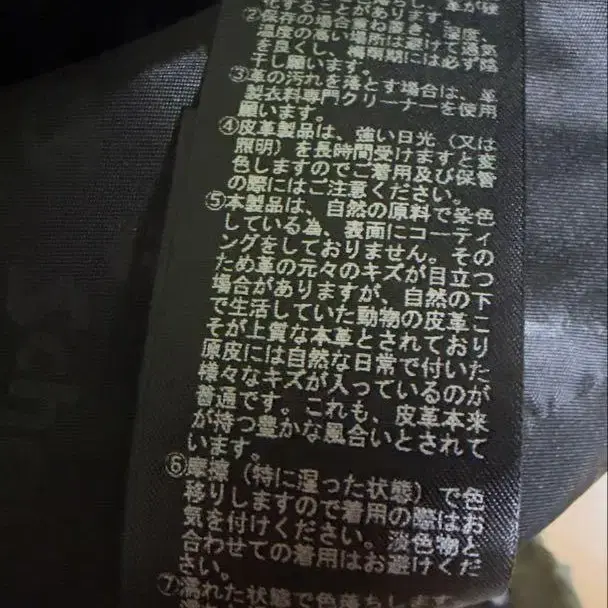 化することがあります。
②保存の場合重ね置き、湿度、
温度の高い場所は避けて通気
を良くし、梅雨期には必ず陰
干し願います。
③革の汚れを落とす場合は、革
製衣料専門クリーナーを使用
願います。
④皮革製品は、強い日光（又は
照明）を長時間受けますと変
色しますのでご着用及び保管
の際にはご注意ください。
⑤本製品は、自然の原料で染色
している為、表面にコーティ
ングをしておりません。その
ため革の元々のキズが目立つ
場合がありますが、自然の下
で生活していた動物の皮革こ
そが上質な本革とされており
原皮には自然な日常で付いた
様々なキズが入っているのが
普通です。これも、皮革本来
が持つ豊かな風合いとされて
います。
⑥摩擦（特に湿った状態）で色
移りしますので着用の際はお
気を付けください。淡色物と
合わせての着用はお避けくだ
さい。
⑦濡れた状態で色落ちします。